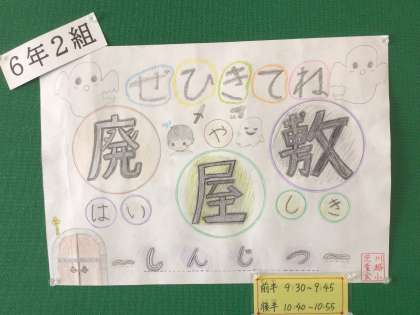 6年2組
ぜひきてね
廃屋敷
はいやしき
〜しんじつ〜
前半 9:30~9:45
後半 10:40~10:55